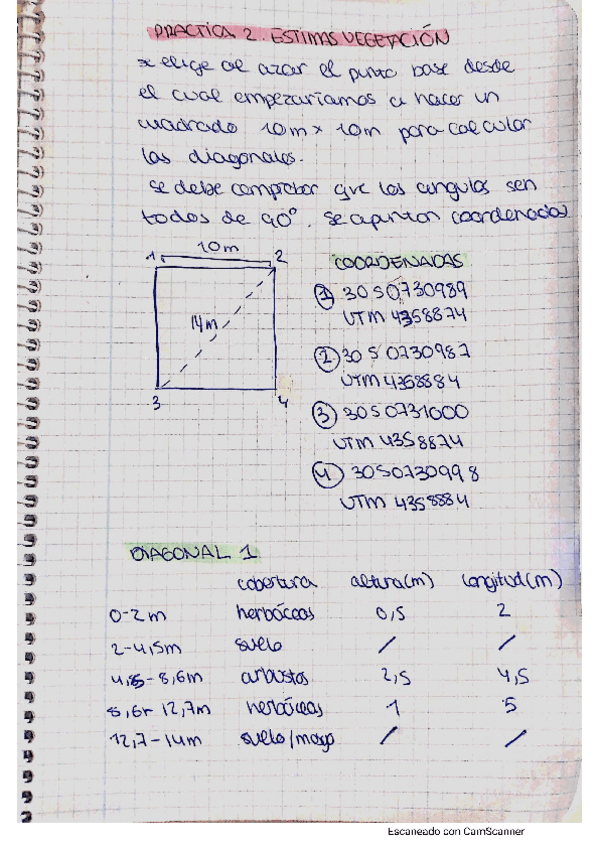 PRACTICA 2. ESTIMAS VEGETACIÓN
se elige al azar el punto base desde
el cual empezaríamos a hacer un
cuadrado 10m x 10m para calcular
las diagonales.
se debe comprobar que los angulos sen
todos de 90°. se apuntan coordenadas
1 10m 2
14m
3 4
COORDENADAS
① 30 S 0730989
UTM 4358874
② 30 S 0730987
UTM 4358884
③ 30 S 0731000
UTM 4358874
④ 30 S 0730998
UTM 4358884
DIAGONAL 1
cobertura altura(m) longitud(m)
0-2m herbáceas 0,5 2
2-4,5m suelo / /
4,5-8,6m arbustos 2,5 4,5
8,6- 12,7m herbáceas 1 5
12,7-14m suelo/musgo / /
Escaneado con CamScanner